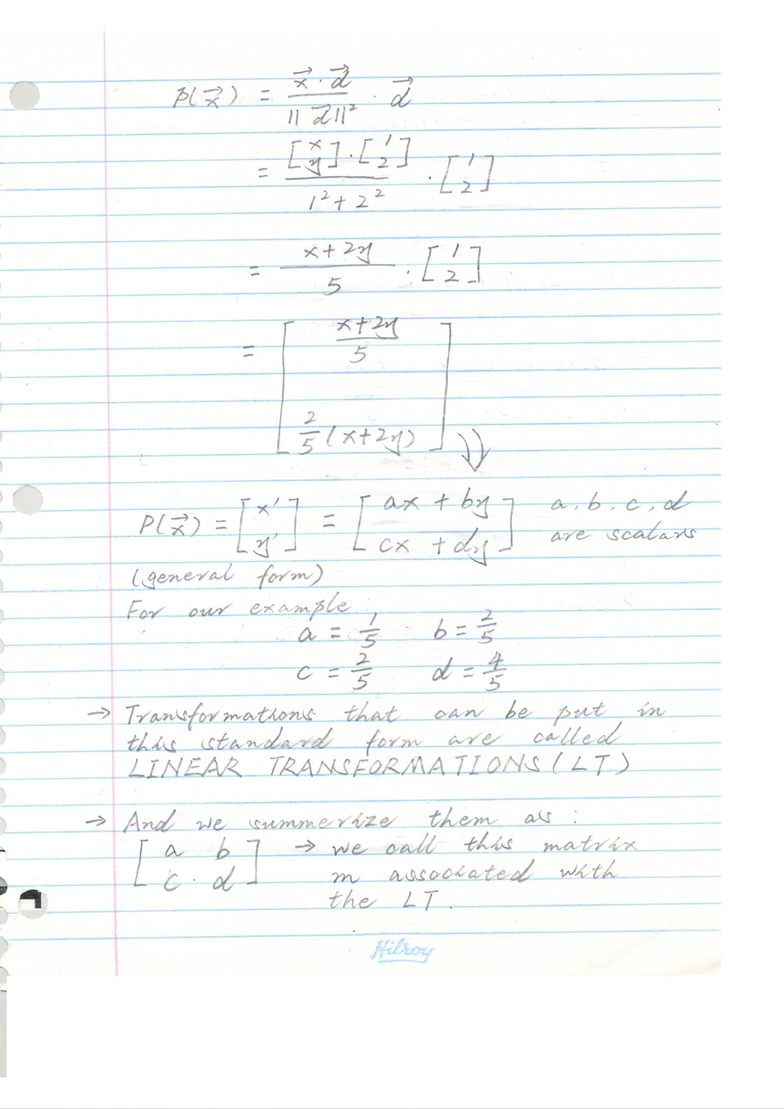 P(x⃗) = x⃗·d⃗ / ||d⃗||² · d⃗
= [x y]·[1 2] / 1² + 2² · [1 2]
= x+2y / 5 · [1 2]
= [x+2y / 5
2/5 (x+2y)] ⇓
P(x⃗) = [x' y'] = [ax + by cx + dy] a, b, c, d are scalars
(general form)
For our example
a = 1/5 b = 2/5
c = 2/5 d = 4/5
→ Transformations that can be put in
this standard form are called
LINEAR TRANSFORMATIONS (LT)
→ And we summerize them as :
[a b c d] → we call this matrix
m associated with
the LT.
Hilroy